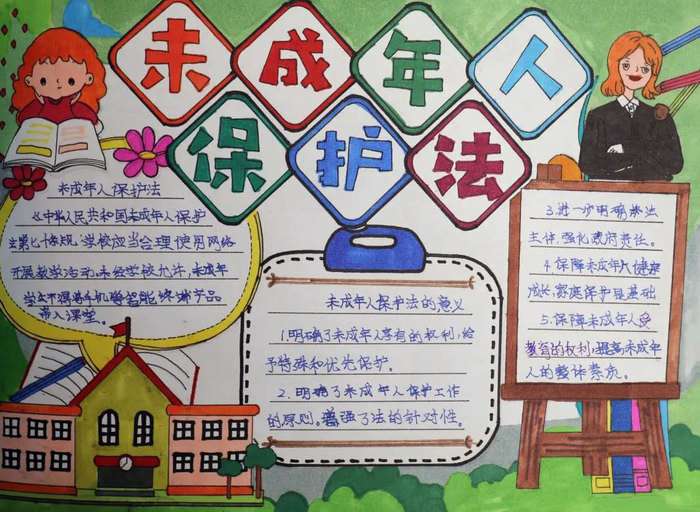 未成年人
保护法
未成年人保护法
《中华人民共和国未成年人保护
法第七十条规,学校应当合理使用网络
开展教学活动,未经学校允许,未成年
学生不得将手机等智能终端产品
带入课堂。
未成年人保护法的意义
1.明确了未成年人享有的权利,给
予特殊和优先保护。
2.明确了未成年人保护工作
的原则。增强了法的针对性。
3.进一步明确执法
主体,强化政府责任。
4.保障未成年人健康
成长,家庭保护是基础
5.保障未成年人受
教育的权利,提高未成年
人的整体素质。